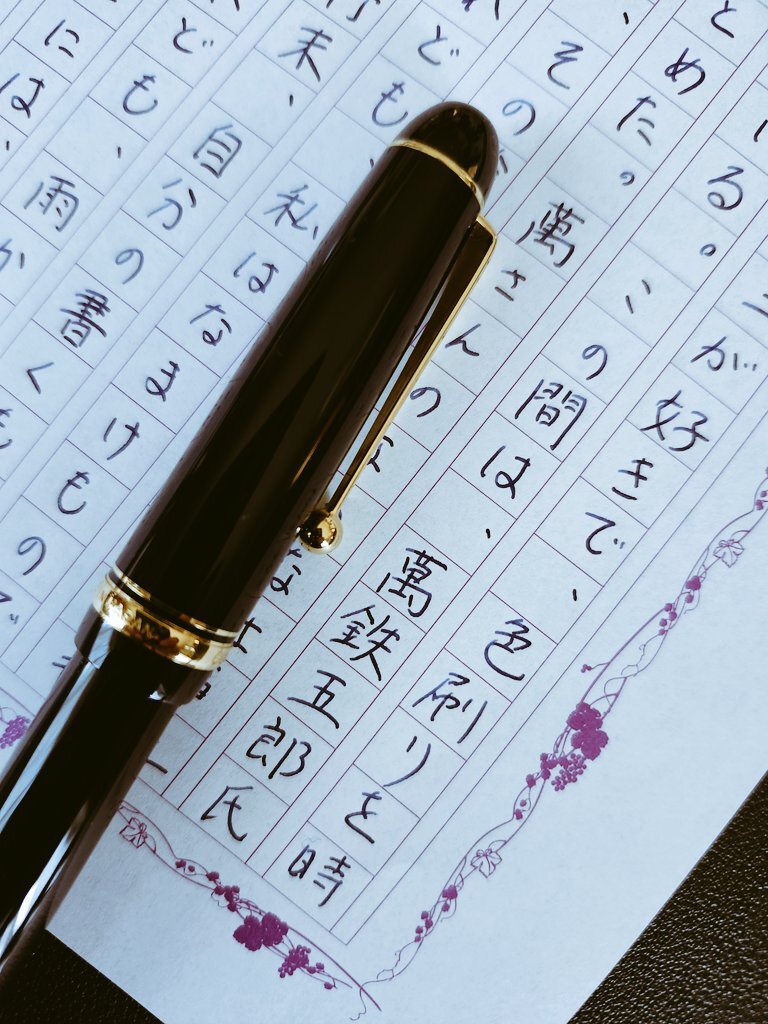 が好きで、色刷りを時
る。この間は、萬鉄五郎氏
とめた。萬さんの
、その
ども、私はなまけもの
末、自分の書くも
ども、雨か
には、